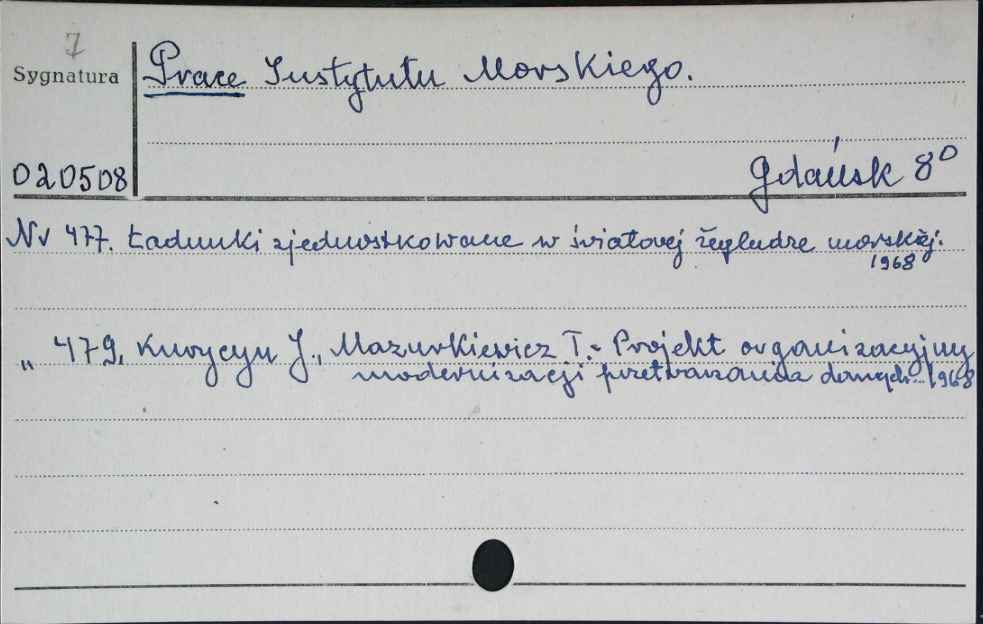 7
Sygnatura
Prace Instytutu Morskiego.
020508
Gdańsk 8°
Nr 477. Ładunki zjednostkowane w światowej żegludze morskiej.
1968
„ 479, Kuryczyn J., Mazurkiewicz T.- Projekt organizacyjny
modernizacji przetwarzania danych... 1968